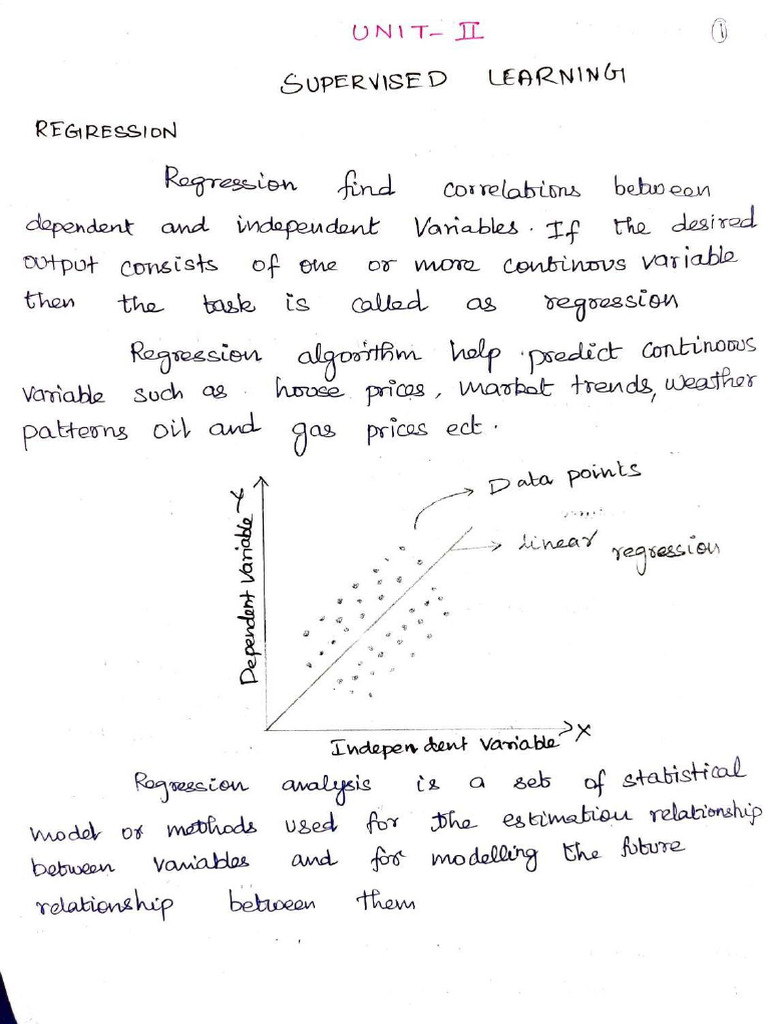 UNIT-II
1
SUPERVISED LEARNING
REGRESSION
Regression find correlations between
dependent and independent Variables. If the desired
output consists of one or more continous variable
then the task is called as regression
Regression algorithm help predict continoous
variable such as house prices, market trends, weather
patterns oil and gas prices ect.
Data points
linear regression
Dependent Variable Y
Independent variable X
Regression analysis is a set of statistical
model or methods used for the estimation relationship
between variables and for modelling the future
relationship between them